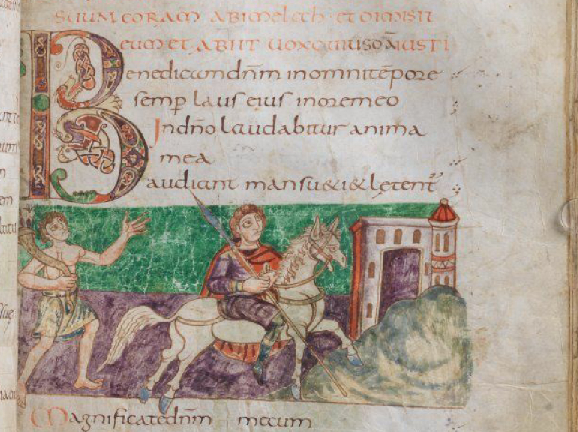 SUUM CORAM ABIMELECH ET DIMISIT
EUM ET ABIIT UOX
Benedicam dnm in omni tempore
semp laus eius in ore meo
In dno laudabitur anima
mea
audiant mansueti & letent
Magnificate dnm mecum